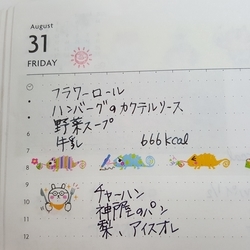 August
31
FRIDAY
フラワーロール
ハンバーグのカクテルソース
野菜スープ
牛乳 666kcal
6
7
8
9
10
11
12
チャーハン
神戸屋のパン
梨、アイスオレ